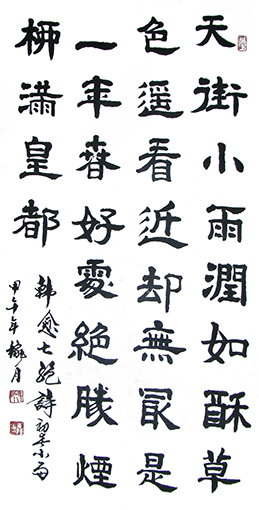 天街小雨潤如酥草
色遥看近却無最是
一年春好處絶勝煙
柳滿皇都
韓愈七絶詩初春小雨
甲午年月